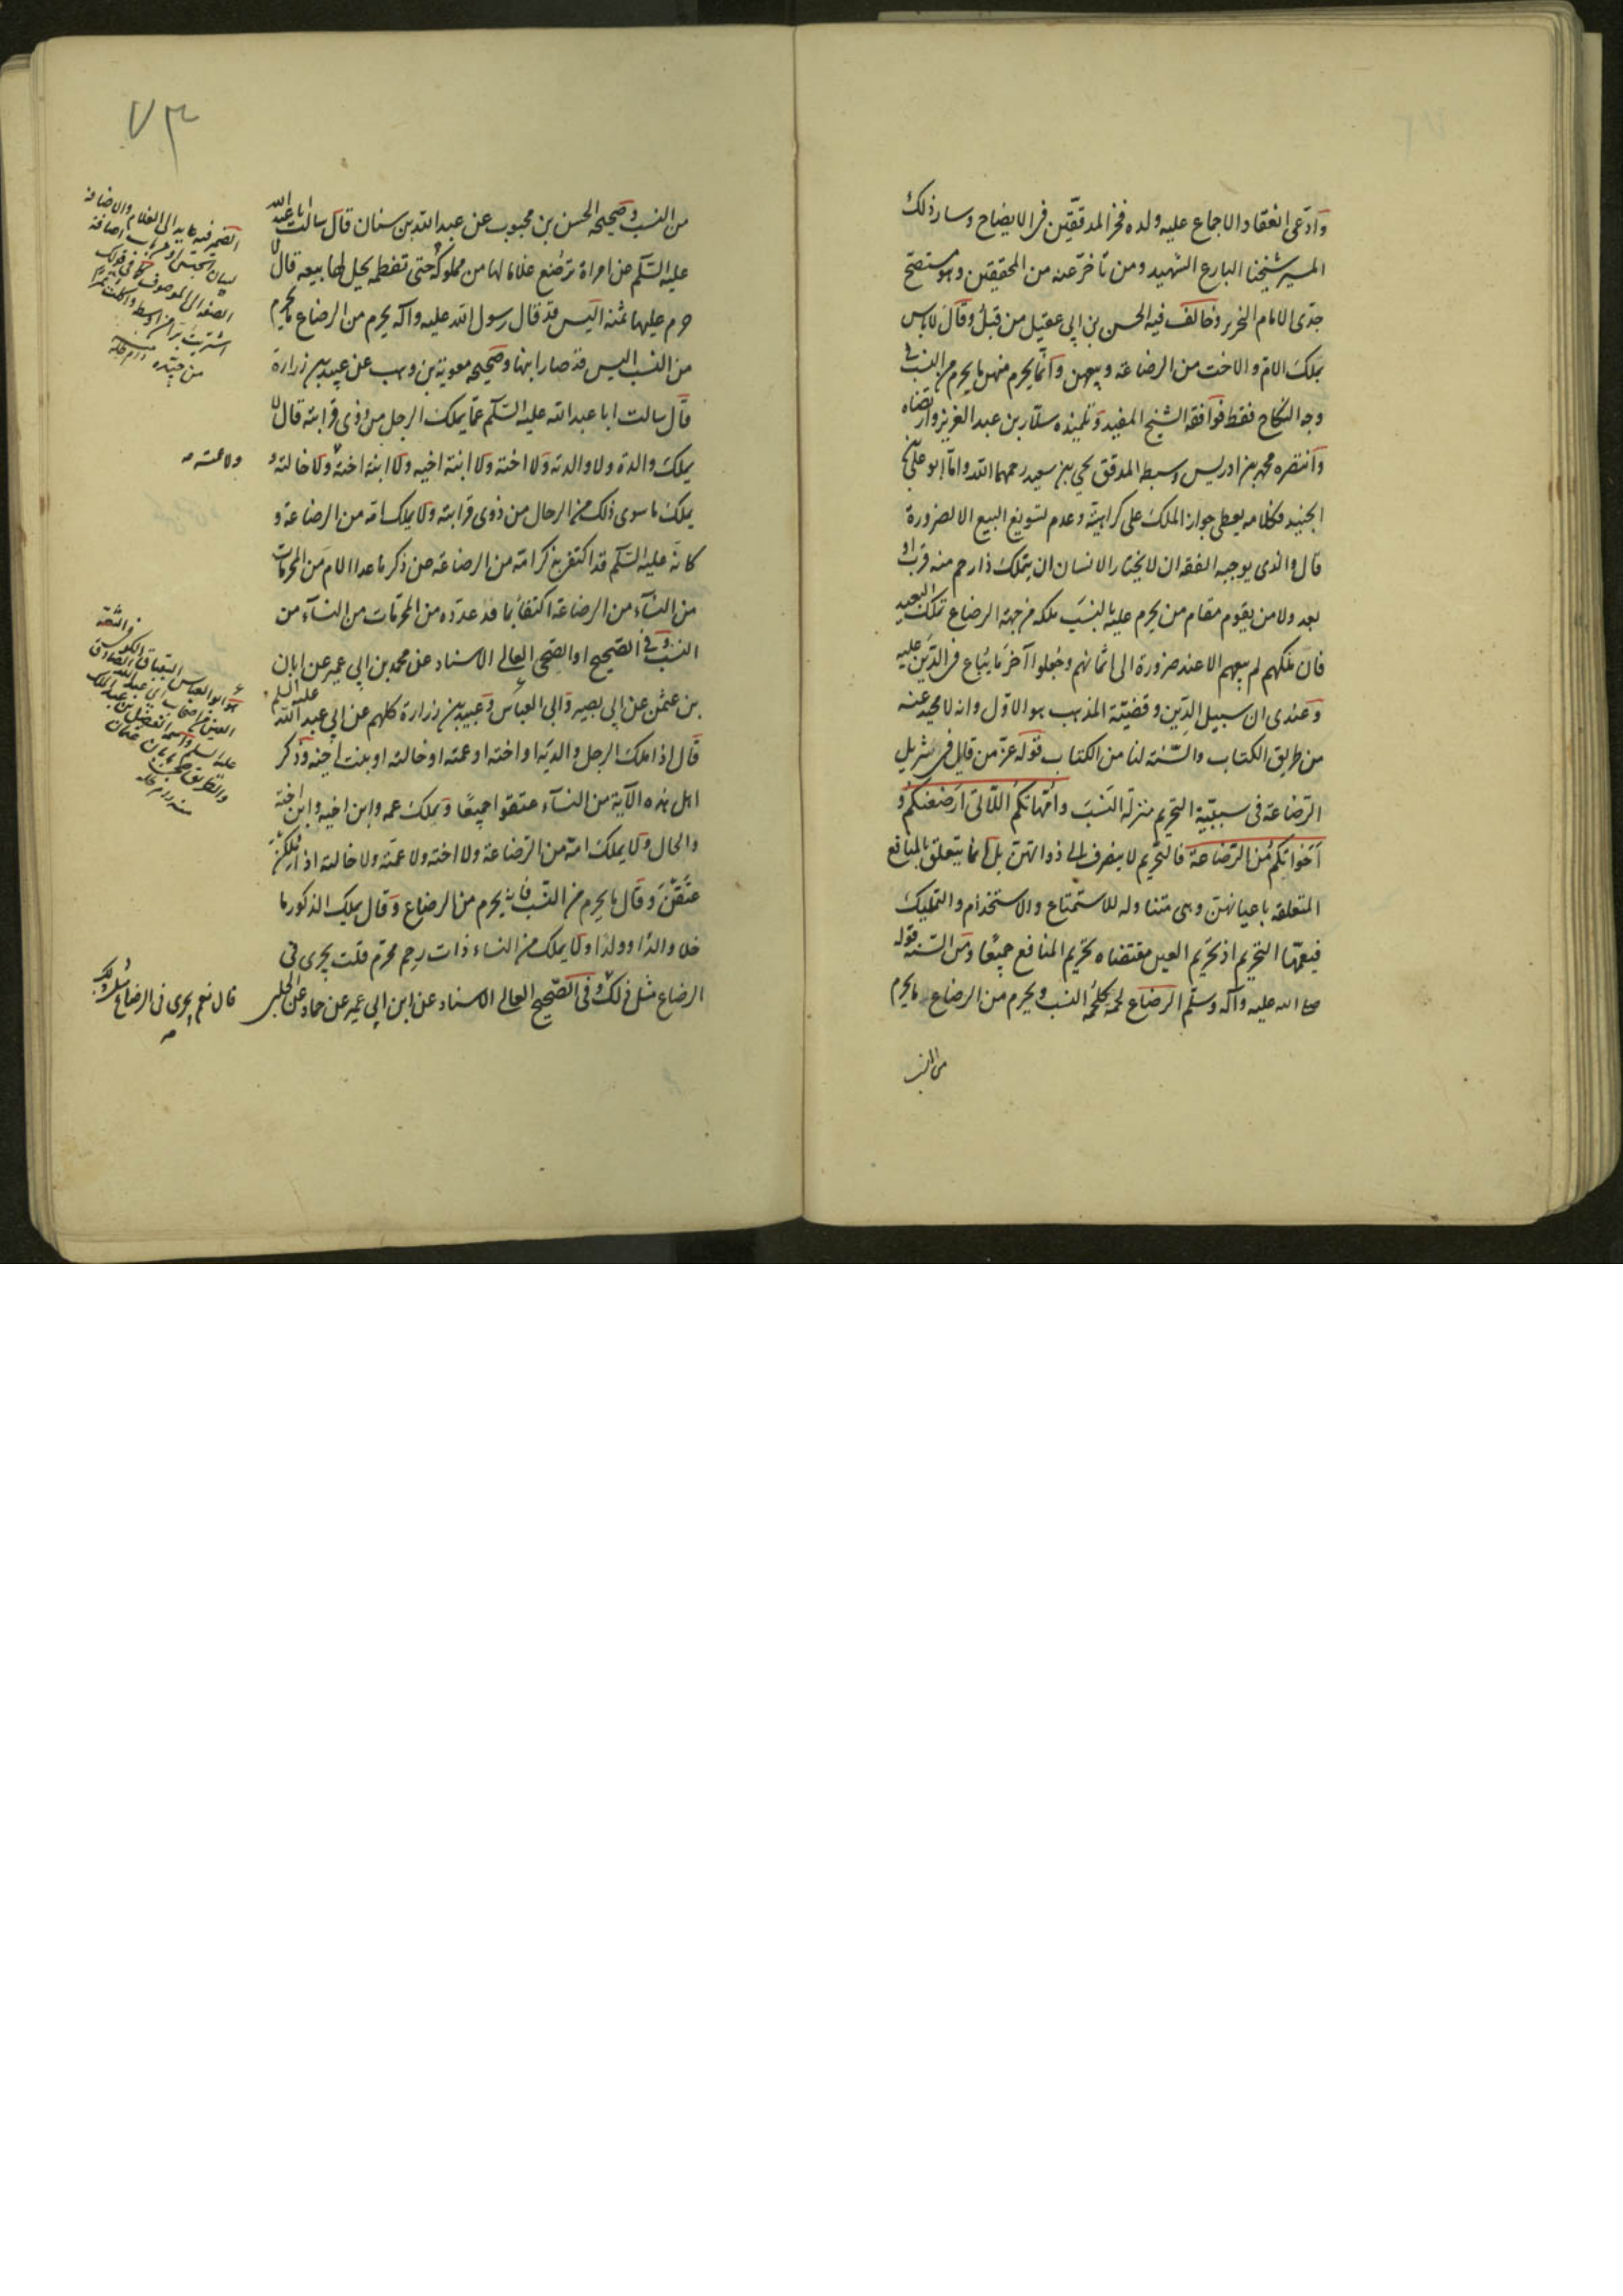 وادّعى انعقاد الاجماع عليه ولده فخر المدققين فى الايضاح وسار ذلك
المسير شيخنا البارع الشهيد ومن تأخر عنه من المحققين وهو مستصح
جدى الامام النحرير وخالف فيه الحسن بن ابى عقيل من قبل وقال لاباس
بملك الام والاخت من الرضاعة وبيعهن وانما يحرم منهن ما يحرم من النسب فى
وجه النكاح فقط فوافقه الشيخ المفيد وتلميذه سلار بن عبد العزيز وارتضاه
وانتصره محمد بن ادريس وسبطه المدقق يحيى بن سعيد رحمهما الله واما ابو على بن
الجنيد فكلامه يعطى جواز الملك على كراهية وعدم تسويغ البيع الا لضرورة
قال والذى يوجبه الفقه ان لا يختار الانسان ان يتملك ذا رحم منه قرب او
بعد ولا من يقوم مقام من يحرم عليه بالنسب ملكه من جهة الرضاع تملك العبيد
فان ملكهم لم يبعهم الا عند ضرورة الى اثمانهم وجعلوا آخر ما يباع فى الدين عليه
وعندى ان سبيل الدين وقضية المذهب هو الاول وانه لا محيد عنه
من طريق الكتاب والسنة لنا من الكتاب قوله عز من قايل فى تنزيل
الرضاعة فى سببية التحريم منزلة النسب وامهاتكم اللاتى ارضعنكم و
اخواتكم من الرضاعة فالتحريم لا ينصرف الى ذواتهن بل انما يتعلق بالمنافع
المتعلقة باعيانهن وهى متناولة للاستمتاع والاستخدام والتمليك
فيعمها التحريم اذ تحريم العين مقتضاه تحريم المنافع جميعا ومن السنة قوله
صلى الله عليه وآله وسلم الرضاع لحمة كلحمة النسب ويحرم من الرضاع ما يحرم
من النسب
٧٣
من النسب وصحيحة الحسن بن محبوب عن عبد الله بن سنان قال سالت ابا عبد الله
عليه السلم عن امراة ترضع غلاما لها من مملوكة حتى تفطمه يحل لها بيعه قال لا
حرم عليها ثمنه اليس قد قال رسول الله عليه وآله يحرم من الرضاع ما يحرم
من النسب اليس قد صار ابنها وصحيحة معوية بن وهب عن عبيد بن زرارة
قال سالت ابا عبد الله عليه السلم عما يملك الرجل من ذوى قرابته قال لا
يملك والده ولا والدته ولا اخته ولا ابنة اخيه ولا ابنة اخته ولا خالته و
يملك ما سوى ذلك من الرجال من ذوى قرابته ولا يملك امه من الرضاعة و
كانه عليه السلم قد اكتفى بذكر امه من الرضاعة عن ذكر ما عدا الام من المحرمات
من النساء من الرضاعة اكتفاءً بما قد عدده من المحرمات من النساء من
النسب وفى الصحيح او الصحى العالى الاسناد عن محمد بن ابى عمير عن ابان
بن عثمن عن ابى بصير وابى العباس وعبيد بن زرارة كلهم عن ابى عبد الله عليه السلم
قال اذا ملك الرجل والديه او اخته او عمته او خالته او بنت اخيه وذكر
اهل هذه الآية من النساء عتقوا جميعا ويملك عمه وابن اخيه وابن اخته
والخال ولا يملك امه من الرضاعة ولا اخته ولا عمته ولا خالته اذا ملكن
عتقن وقال ما يحرم من النسب فانه يحرم من الرضاع وقال يملك الذكور ما
خلا والدا وولدا ولا يملك من النساء ذات رحم محرم قلت يجرى فى
الرضاع مثل ذلك وفى الصحيح العالى الاسناد عن ابن ابى عمير عن حماد عن الحلبى
الضمير فيه عايد الى الغلام والاضافة
لبيان الجنس او من باب اضافة
الصفة الى الموصوف كما فى قولك
ولا عمته صه
هو ابو العباس البقباق الكوفى الثقة
العين من اصحاب ابى عبد الله الصادق
عليه السلم واسمه الفضل بن عبد الملك
والطريق صحى بابان بن عثمان
منه دام ظله
قال نعم يجرى فى الرضاع مثل ذلك
صه